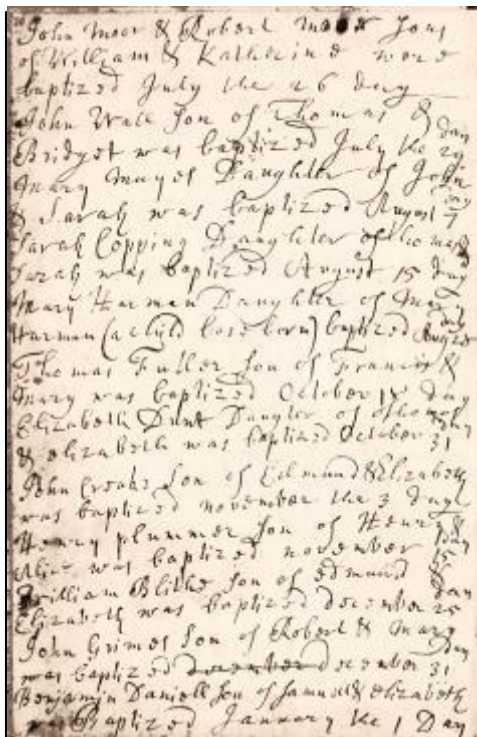 John Moor & Robert Moor Sons
of William & Katherine were
baptized July the 26 day
John Wall Son of Thomas &
Bridget was baptized July the 29 day
Mary Mayes Daughter of John
& Sarah was baptized August 7 day
Sarah Copping Daughter of Thomas &
Sarah was baptized August 15 day
Mary Harman Daughter of Mary
Harman (a Child base born) baptized day
Thomas Fuller Son of Francis &
Mary was baptized October day
Elizabeth Dunt Daughter of Thomas
& Elizabeth was baptized October 31 day
John Creake Son of Edmund & Elizabeth
was baptized november the 3 day
Henry plummer Son of Henry &
Alice was baptized november 15 day
William Blithe Son of Edmund &
Elizabeth was baptized December 25 day
John Grimes Son of Robert & Mary
was baptized december December 31 day
Benjamin Daniell Son of Samuel & Elizabeth
was Baptized January the 1 Day